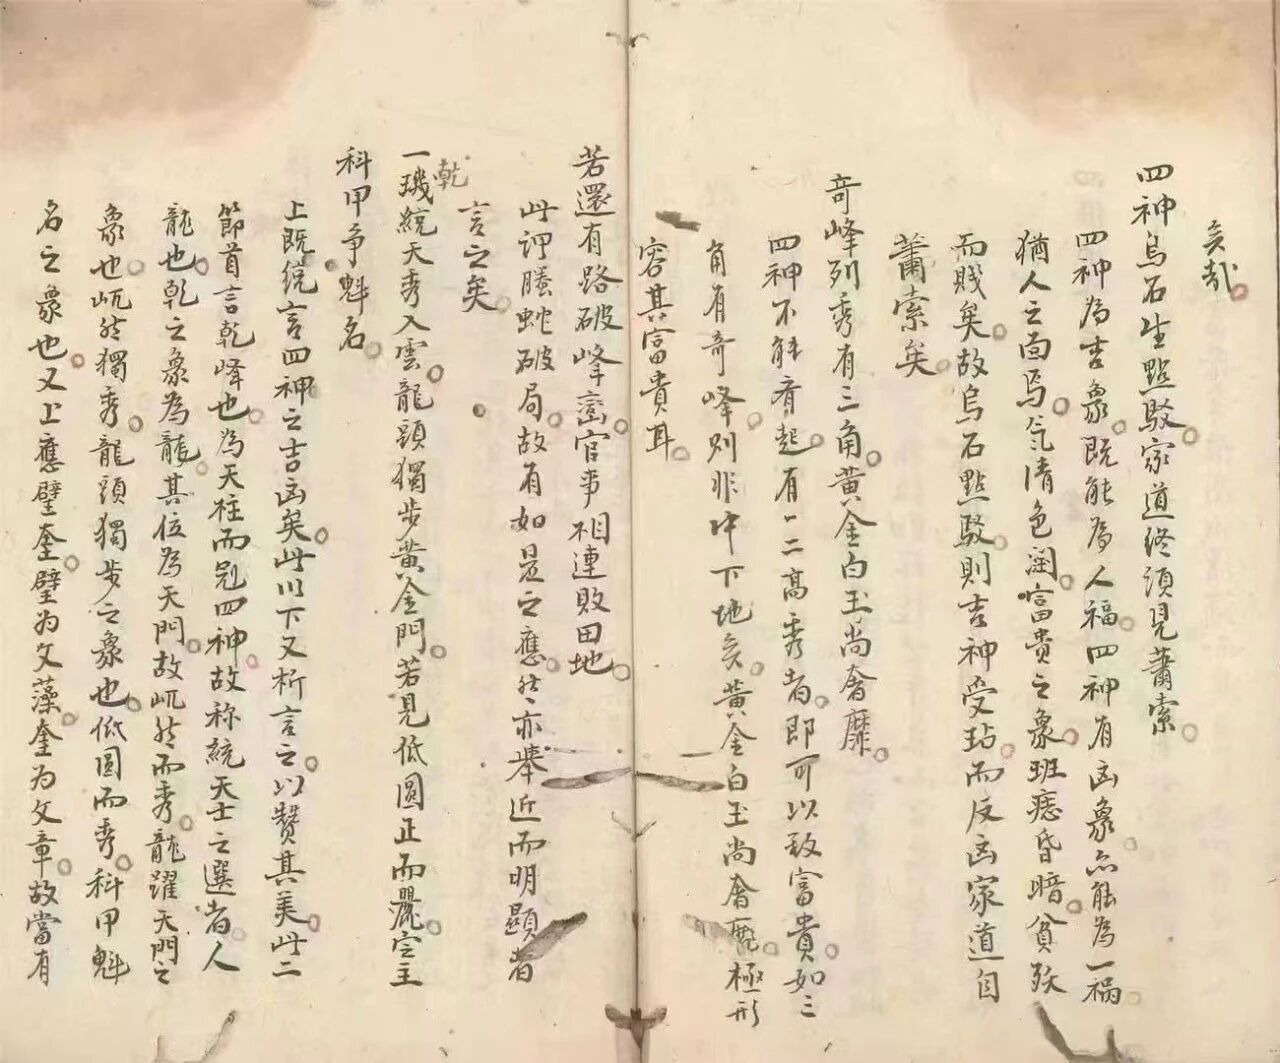 矣哉
四神烏石生點駁家道終須見蕭索
四神為吉象既能為人福四神有凶象亦能為人禍
猶人之面焉气清色潤富贵之象班痣昏暗貧殀
而賤矣故烏石點駁則吉神受玷而反凶家道自
蕭索矣
奇峰列秀有三角黃金白玉尚奢靡
四神不觧齊起有一二高秀者即可以致富貴如三
角有奇峰则非中下地矣黃金白玉尚奢靡極形
容其富貴耳
若還有路破峰巒官事相連敗田地
此謂螣蛇破局故有如是之應然亦舉近而明顯者
言之矣
乾
一璣統天秀入雲龍頭獨步黃金門若見低圓正而麗定主
科甲争魁名
上既統言四神之吉凶矣此以下又析言之以贊其美此二
節首言乾峰也為天柱而冠四神故称統天士之選者人
龍也乾之象為龍其位為天門故屹然而秀龍躍天門之
象也屹然獨秀龍頭獨步之象也低圓而秀科甲魁
名之象也又上應壁奎壁为文藻奎为文章故當有